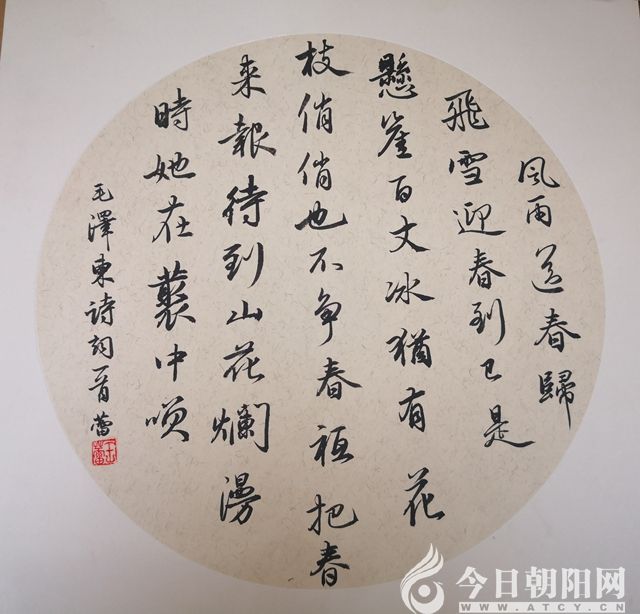 風雨送春歸
飛雪迎春到已是
懸崖百丈冰猶有花
枝俏俏也不争春祗把春
来報待到山花爛漫
時她在藂中咲
毛澤東诗词一首蕾
今日朝阳网
WWW.ATCY.CN